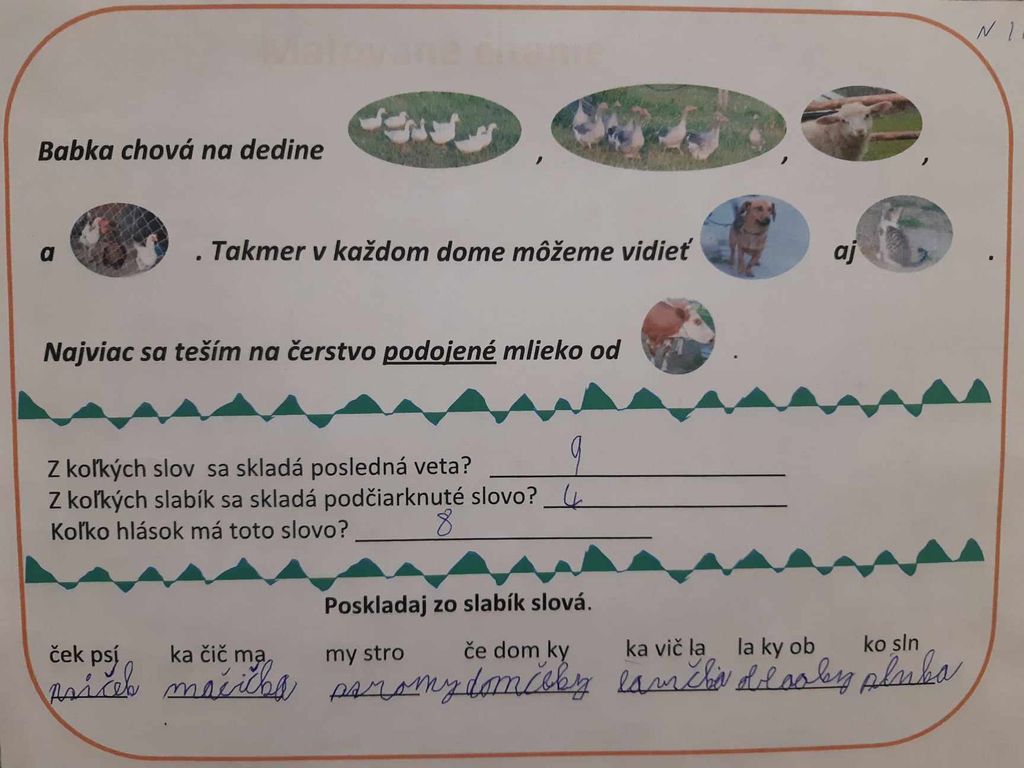 N 1
Babka chová na dedine , , ,
a . Takmer v každom dome môžeme vidieť aj .
Najviac sa teším na čerstvo podojené mlieko od .
Z koľkých slov sa skladá posledná veta? 9
Z koľkých slabík sa skladá podčiarknuté slovo? 4
Koľko hlások má toto slovo? 8
Poskladaj zo slabík slová.
ček psí ka čič ma my stro če dom ky ka vič la la ky ob ko sln
psíček mačička domčeky